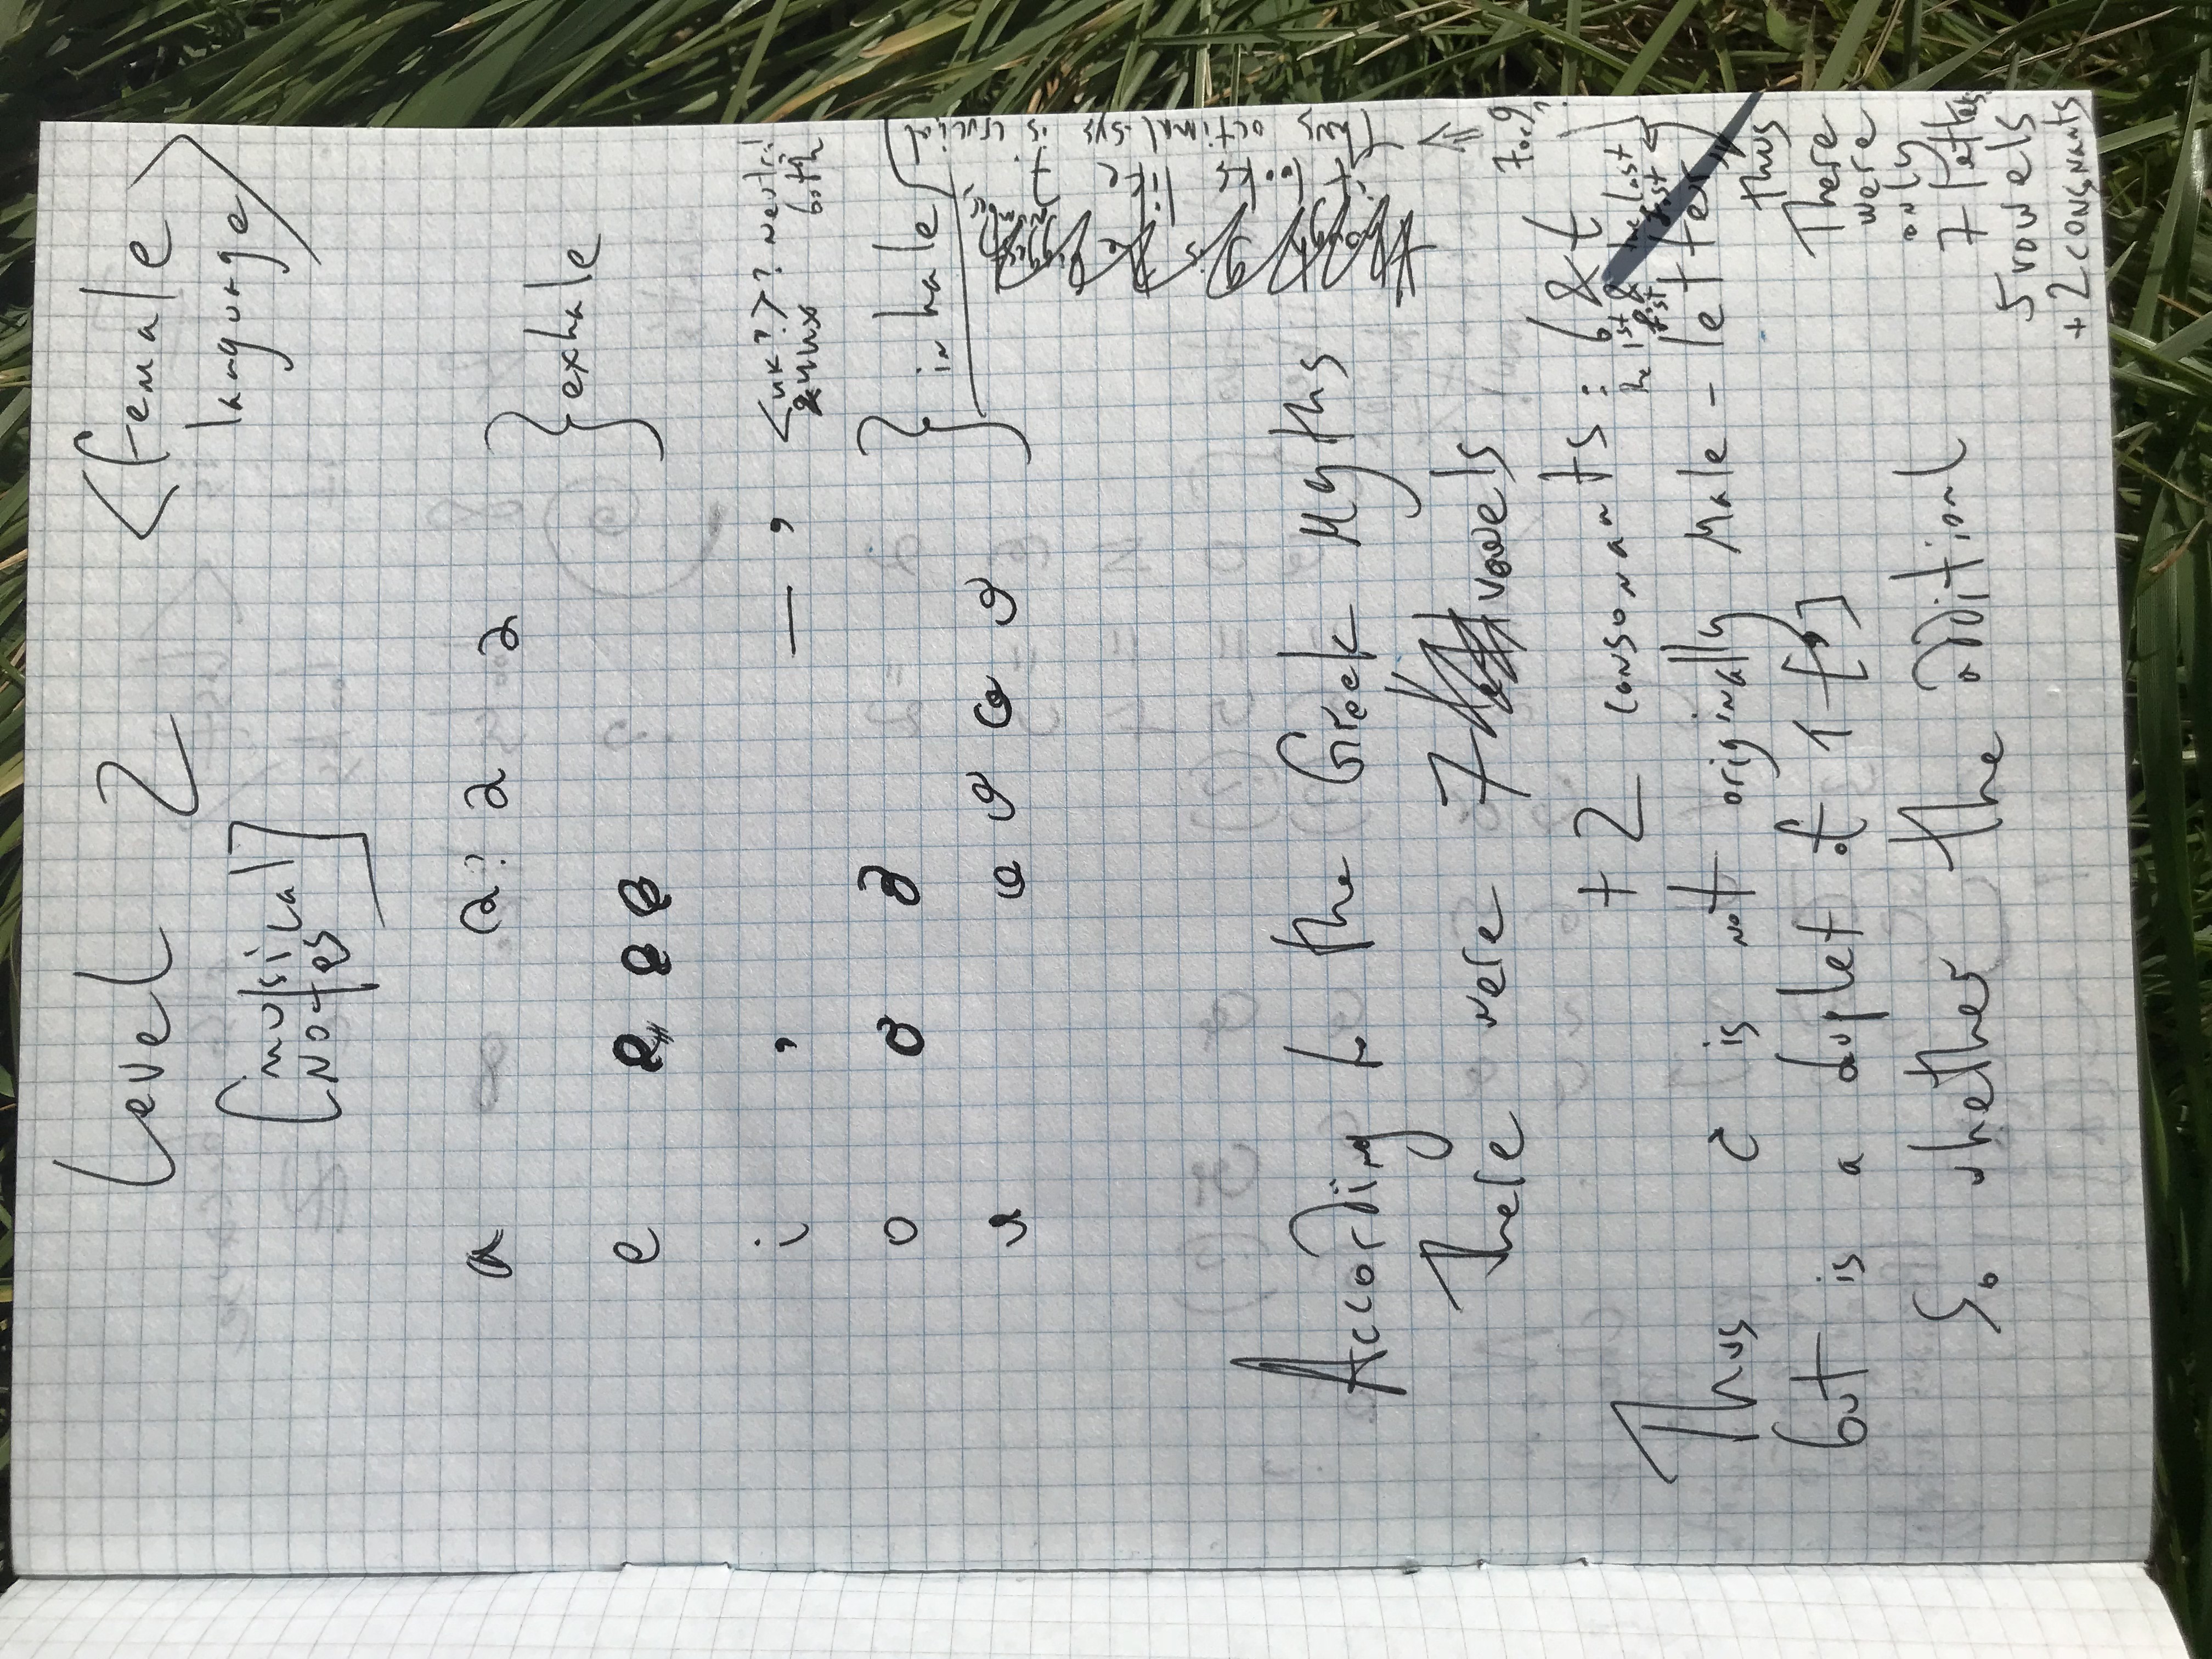 Level 2 <female
language>
[musical
Notes]
a 2? 2 2 } exhale
e e e e
i , — , <uk?>? neutral
both
o } inhale
u
number,
it looks like 7.
7 or 9? => thus octimal sys is crucial
According to the Greek Myths
There were 7 vowels
+ 2 consonants: b & t
the 1st & the last
first last
Thus c is not originally Male-letter,
but is a duplet of 1 [,]
So whether the additional
thus
There
were
only
7 letters:
5 vowels
+ 2 consnants